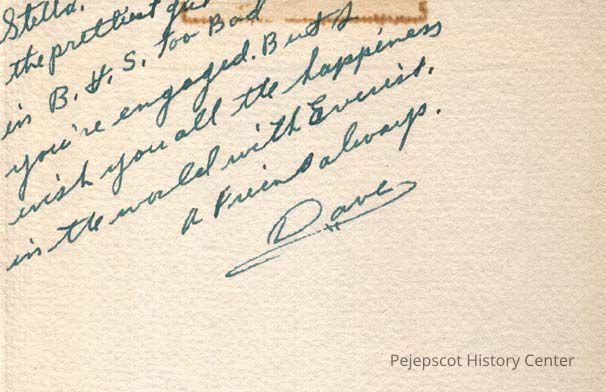 Stella,
the prettiest girl
in B.H.S. Too Bad
you're engaged. But I
wish you all the happiness
in the world with Everist.
a Friend always.
Dave
Pejepscot History Center